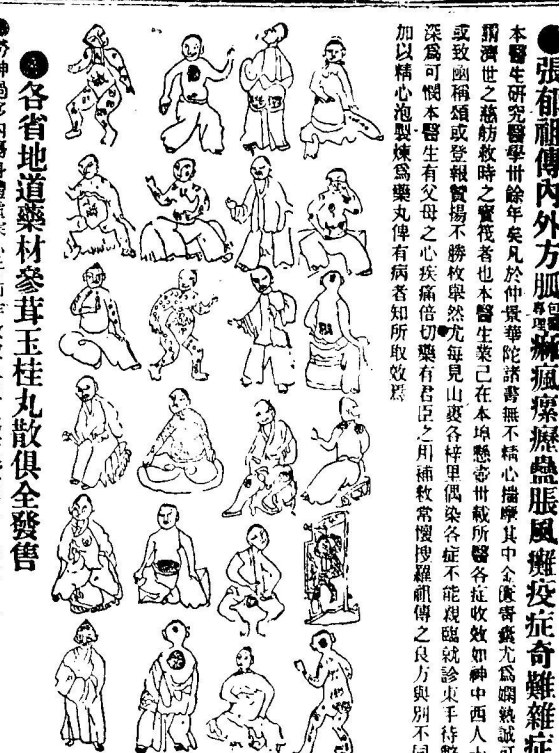 ●張郁祖傳內外方脈包醫專理痳瘋瘰癧蠱脹風癱疫症奇難雜症
本醫生研究醫學卅餘年矣凡於仲景華陀諸書無不精心揣摩其中金匱青囊尤爲嫻熟誠
謂濟世之慈舫救時之寶筏者也本醫生業已在本埠懸壺卅載所醫各症收效如神中西人
或致函稱頌或登報贊揚不勝枚舉然尤每見山裏各梓里偶染各症不能親臨就診束手待
深爲可憫本醫生有父母之心疾痛倍切藥有君臣之用補救常懷搜羅祖傳之良方與別不同
加以精心泡製煉爲藥丸俾有病者知所取效焉
●各省地道藥材參茸玉桂丸散俱全發售